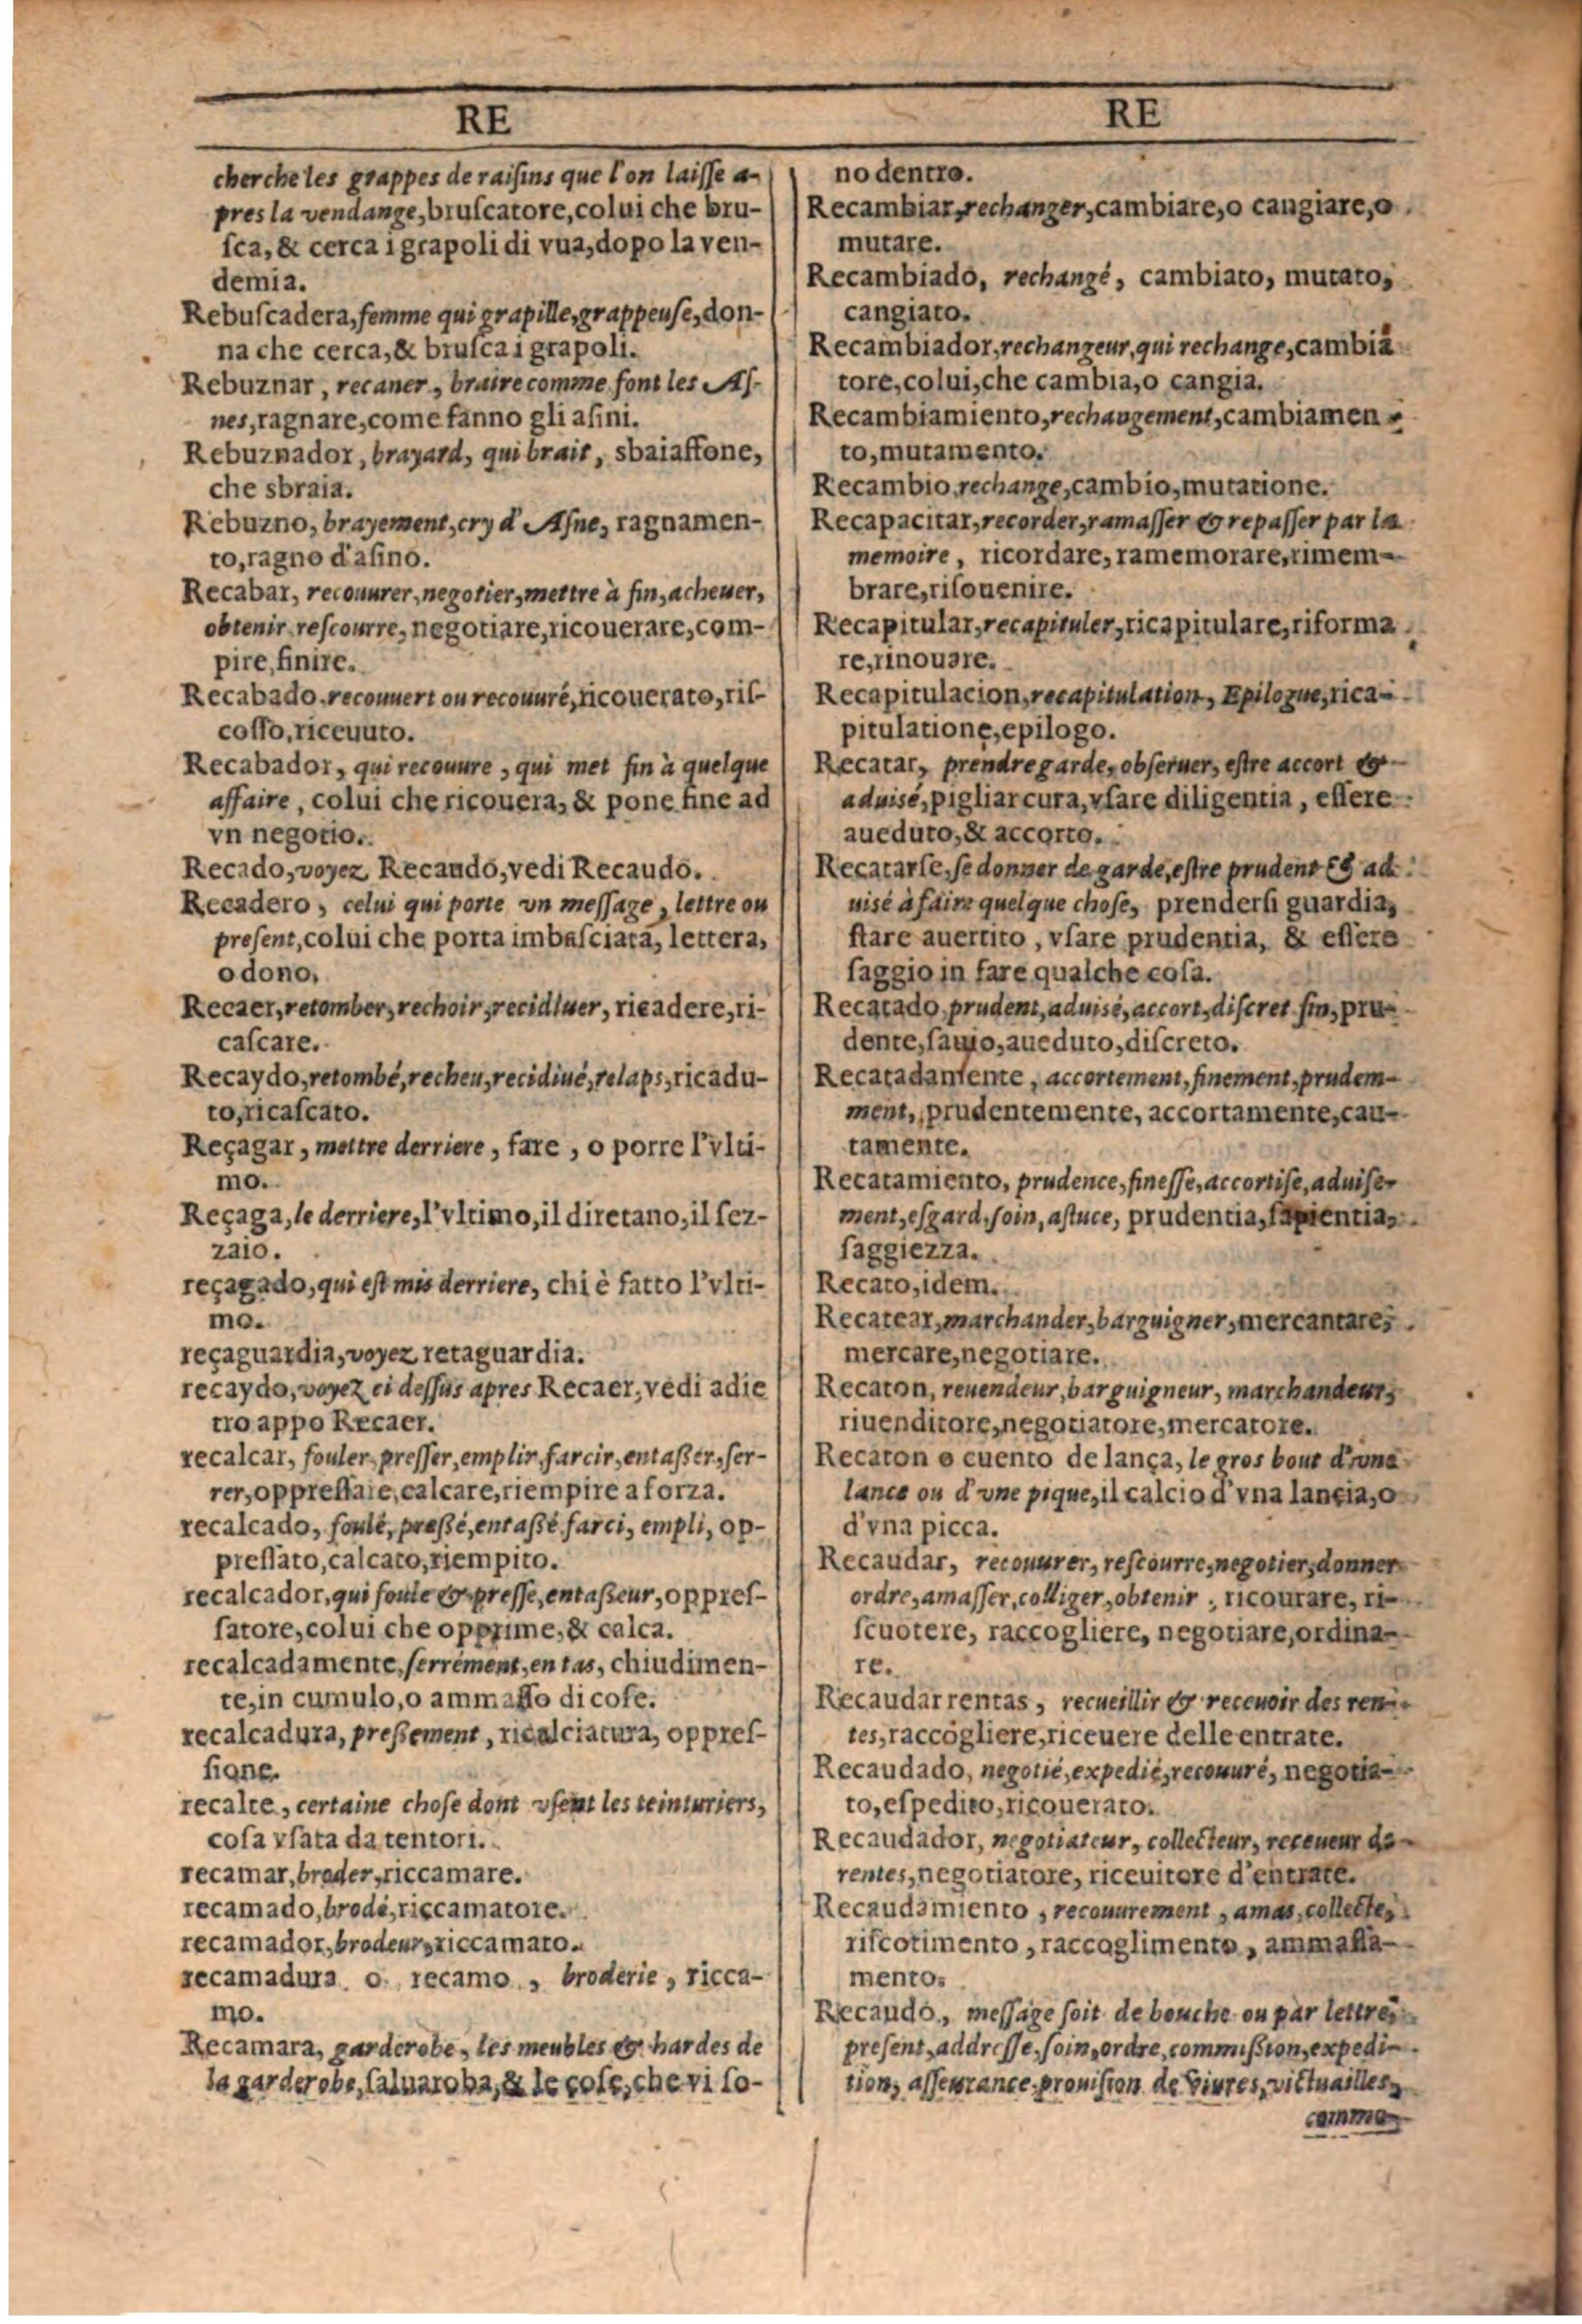 RE
cherche les grappes de raiſins que l'on laiſſe a-
pres la vendange, bruſcatore, colui che bru-
ſca, & cerca i grapoli di vua, dopo la ven-
demia.
Rebuſcadera, femme qui grapille, grappeuſe, don-
na che cerca, & bruſca i grapoli.
Rebuznar, recaner, braire comme font les Aſ-
nes, ragnare, come fanno gli aſini.
Rebuznador, brayard, qui brait, sbaiaffone,
che sbraia.
Rebuzno, brayement, cry d'Aſne, ragnamen-
to, ragno d'aſino.
Recabar, recouurer, negotier, mettre à fin, acheuer,
obtenir reſcourre, negotiare, ricouerare, com-
pire, finire.
Recabado, recouuert ou recouuré, ricouerato, riſ-
coſſo, riceuuto.
Recabador, qui recouure, qui met fin à quelque
affaire, colui che ricouera, & pone fine ad
vn negotio.
Recado, voyez Recaudo, vedi Recaudo.
Recadero, celui qui porte vn meſſage, lettre ou
preſent, colui che porta imbaſciata, lettera,
o dono.
Recaer, retomber, rechoir, recidiuer, ricadere, ri-
caſcare.
Recaydo, retombé, recheu, recidiué, relaps, ricadu-
to, ricaſcato.
Reçagar, mettre derriere, fare, o porre l'vlti-
mo.
Reçaga, le derriere, l'vltimo, il diretano, il ſez-
zaio.
reçagado, qui eſt mis derriere, chi è fatto l'vlti-
mo.
reçaguardia, voyez retaguardia.
recaydo, voyez ci deſſus apres Recaer, vedi adie
tro appo Recaer.
recalcar, fouler, preſſer, emplir, farcir, entaſſer, ſer-
rer, oppreſſare, calcare, riempire a forza.
recalcado, foulé, preſſé, entaſſé farci, empli, op-
preſſato, calcato, riempito.
recalcador, qui foule & preſſe, entaſſeur, oppreſ-
ſatore, colui che opprime, & calca.
recalcadamente, ſerrément, en tas, chiudimen-
te, in cumulo, o ammaſſo di coſe.
recalcadura, preſſement, ricalciatura, oppreſ-
ſione.
recalte, certaine choſe dont vſent les teinturiers,
coſa vſata da tentori.
recamar, broder, riccamare.
recamado, brodé, riccamatore.
recamador, brodeur, riccamato.
recamadura o recamo, broderie, ricca-
mo.
Recamara, garderobe, les meubles & hardes de
la garderobe, ſaluaroba, & le coſe, che vi ſo-
RE
no dentro.
Recambiar, rechanger, cambiare, o cangiare, o
mutare.
Recambiado, rechangé, cambiato, mutato,
cangiato.
Recambiador, rechangeur, qui rechange, cambia
tore, colui, che cambia, o cangia.
Recambiamiento, rechangement, cambiamen
to, mutamento.
Recambio, rechange, cambio, mutatione.
Recapacitar, recorder, ramaſſer & repaſſer par la
memoire, ricordare, ramemorare, rimem-
brare, riſouenire.
Recapitular, recapituler, ricapitulare, riforma
re, rinouare.
Recapitulacion, recapitulation, Epilogue, rica-
pitulatione, epilogo.
Recatar, prendre garde, obſeruer, eſtre accort &
aduisé, pigliar cura, vſare diligentia, eſſere
aueduto, & accorto.
Recatarſe, ſe donner de garde, eſtre prudent & ad
uisé à faire quelque choſe, prenderſi guardia,
ſtare auertito, vſare prudentia, & eſſere
ſaggio in fare qualche coſa.
Recatado, prudent, aduisé, accort, diſcret fin, pru-
dente, ſauio, aueduto, diſcreto.
Recatadamente, accortement, finement, prudem-
ment, prudentemente, accortamente, cau-
tamente.
Recatamiento, prudence, fineſſe, accortiſe, aduiſe-
ment, eſgard, ſoin, aſtuce, prudentia, ſapientia,
ſaggiezza.
Recato, idem.
Recatear, marchander, barguigner, mercantare,
mercare, negotiare.
Recaton, reuendeur, barguigneur, marchandeur,
riuenditore, negotiatore, mercatore.
Recaton o cuento de lança, le gros bout d'vne
lance ou d'vne pique, il calcio d'vna lancia, o
d'vna picca.
Recaudar, recouurer, reſcourre, negotier, donner
ordre, amaſſer, colliger, obtenir, ricourare, ri-
ſcuotere, raccogliere, negotiare, ordina-
re.
Recaudar rentas, recueillir & receuoir des ren-
tes, raccògliere, riceuere delle entrate.
Recaudado, negotié, expedié, recouuré, negotia-
to, eſpedito, ricouerato.
Recaudador, negotiateur, collecteur, receueur de
rentes, negotiatore, riceuitore d'entrate.
Recaudamiento, recouurement, amas, collecte,
riſcotimento, raccoglimento, ammaſſa-
mento.
Recaudo, meſſage ſoit de bouche ou par lettre,
preſent, addreſſe, ſoin, ordre, commiſſion, expedi-
tion, aſſeurance, prouiſion de viures, victuailles,
comme